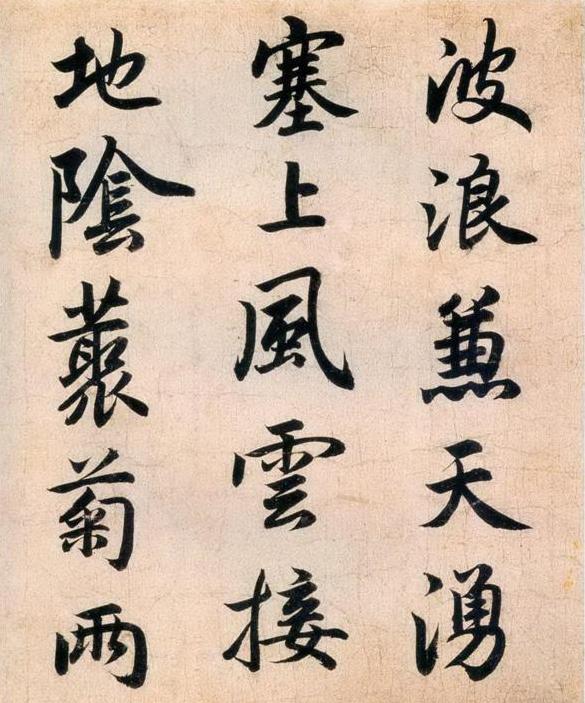 波浪兼天湧
塞上風雲接
地隂藂菊兩